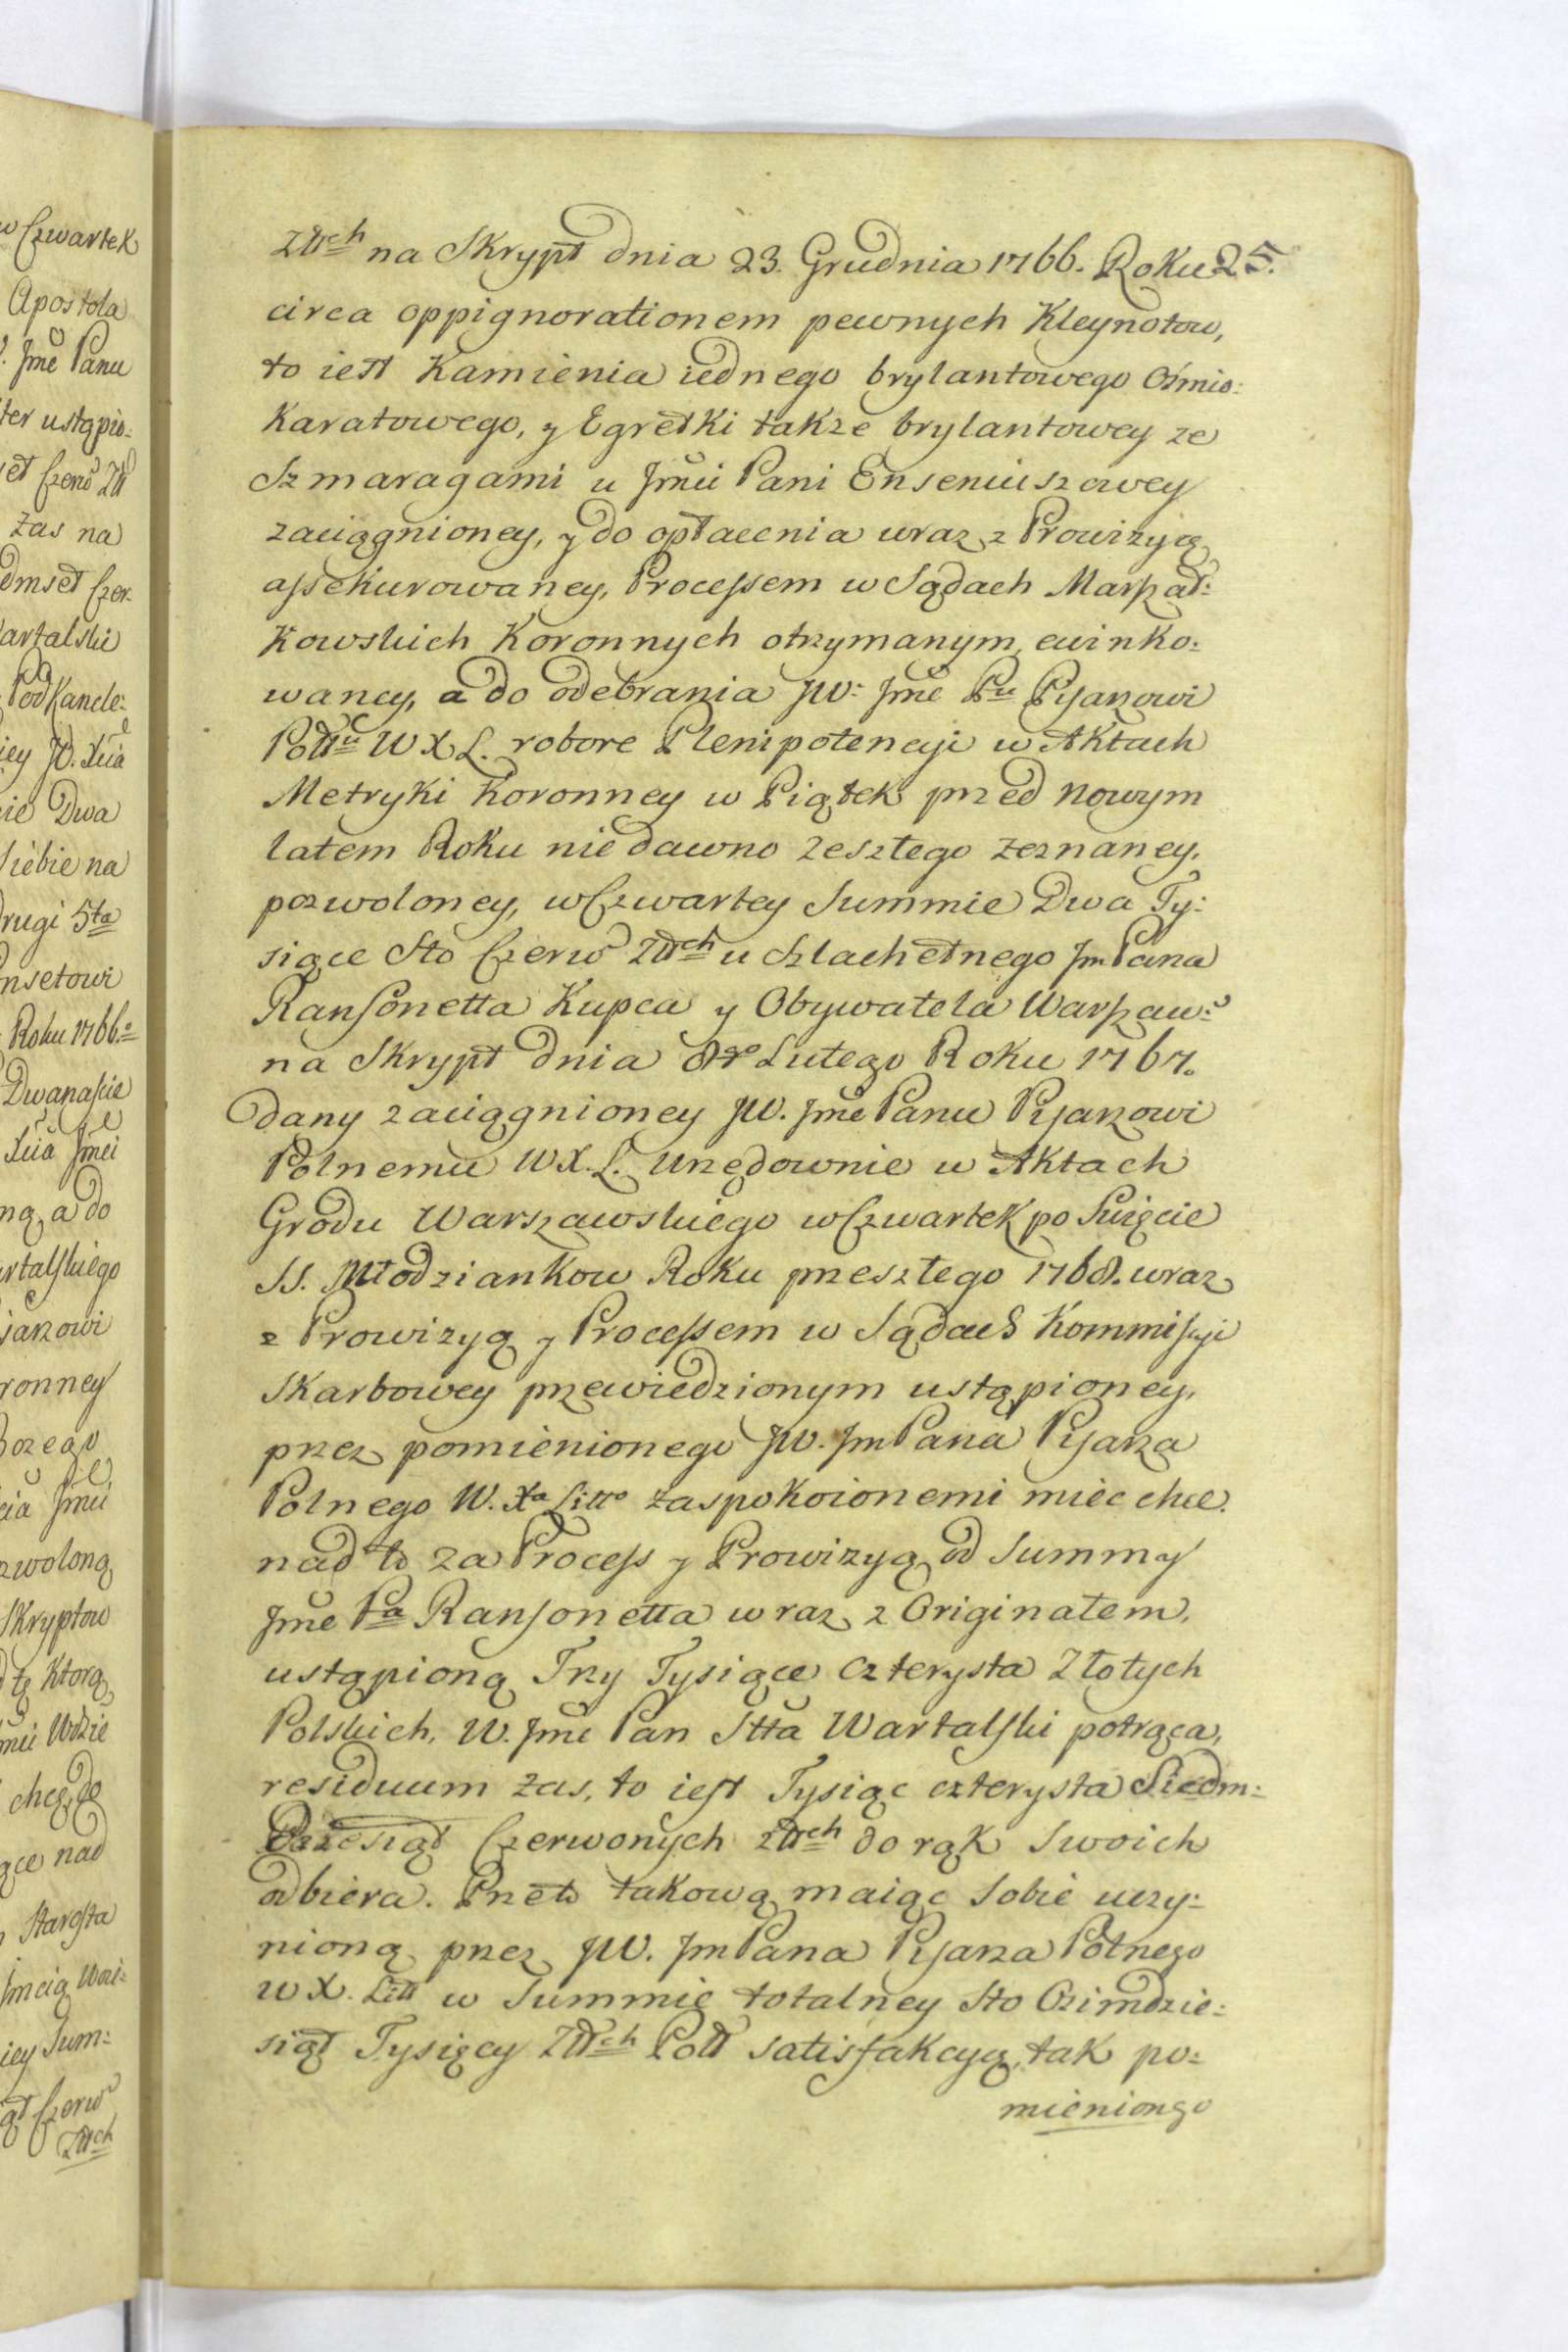 w Czwartek
Apostoła
Jmć Panu
ter ustąpio:
set Czerw Złł
zas na
dmset Czer-
artalski
PodKancle:
iey JO. Xcia
ie Dwa
siebie na
drugi 5ta
nsetowi
Roku 1766.
Dwanaście
Xcia Jmci
ną, a do
artalskiego
isarzowi
ronney
Bożego
cia Jmci
zwoloną
Skryptow
tę Ktorą
mci Wdzie
chcę, do
ące nad
Starosta
Jmcią Woi:
iey Sum:
iąt Czerw
Złłch
Złłch na Skrypt dnia 23. Grudnia 1766. Roku 25.
circa oppignorationem pewnych Kleynotow,
to iest Kamienia iednego brylantowego Ośmio:
Karatowego, y Egretki takze brylantowey ze
Szmaragami u Jmci Pani Enseniuszowey
zaciągnioney, y do opłacenia wraz z Prowizyią
assekurowaney, Processem w Sądach Marszał:
Kowskich Koronnych otrzymanym, ewinko:
waney, a do odebrania JW: Jmć Pu Pisarzowi
Pollu W X L. robore Plenipotencyi w Aktach
Metryki Koronney w Piątek przed Nowym
latem Roku nie dawno zeszłego zeznaney,
pozwoloney, w Czwartey Summie Dwa Ty:
siące Sto Czerw Złłch u Szlachetnego Jm Pana
Ransonetta Kupca y Obywatela Warszaw:
na Skrypt dnia 8go Lutego Roku 1767.
dany zaciągnioney JW. Jmć Panu Pisarzowi
Polnemu W X. L. Urzędownie w Aktach
Grodu Warszawskiego w Czwartek po Swięcie
SS. Młodziankow Roku przeszłego 1768. wraz
z Prowizyą y Processem w Sądach Kommissyi
Skarbowey przewiedzionym ustąpioney,
przez pomienionego JW. Jm Pana Pisarza
Polnego W. Xa Litto zaspokoionemi miec chce.
nad to za Process y Prowizyą od Summy
Jmć Pa Ransonetta wraz z Originałem,
ustąpioną Trzy Tysiące czterysta Złotych
Polskich, W. Jmć Pan Stta Wartalski potrąca,
residuum zas, to iest Tysiąc czterysta Siedm:
Dziesiąt Czerwonych złłch do rąk Swoich
odbiera. Przeto takową maiąc Sobie uczy:
nioną przez JW. Jm Pana Pisarza Polnego
W X. Litt w Summie totalney Sto Ośmdzie:
siąt Tysięcy Złłch Poll satisfakcyą, tak po:
mieniongo